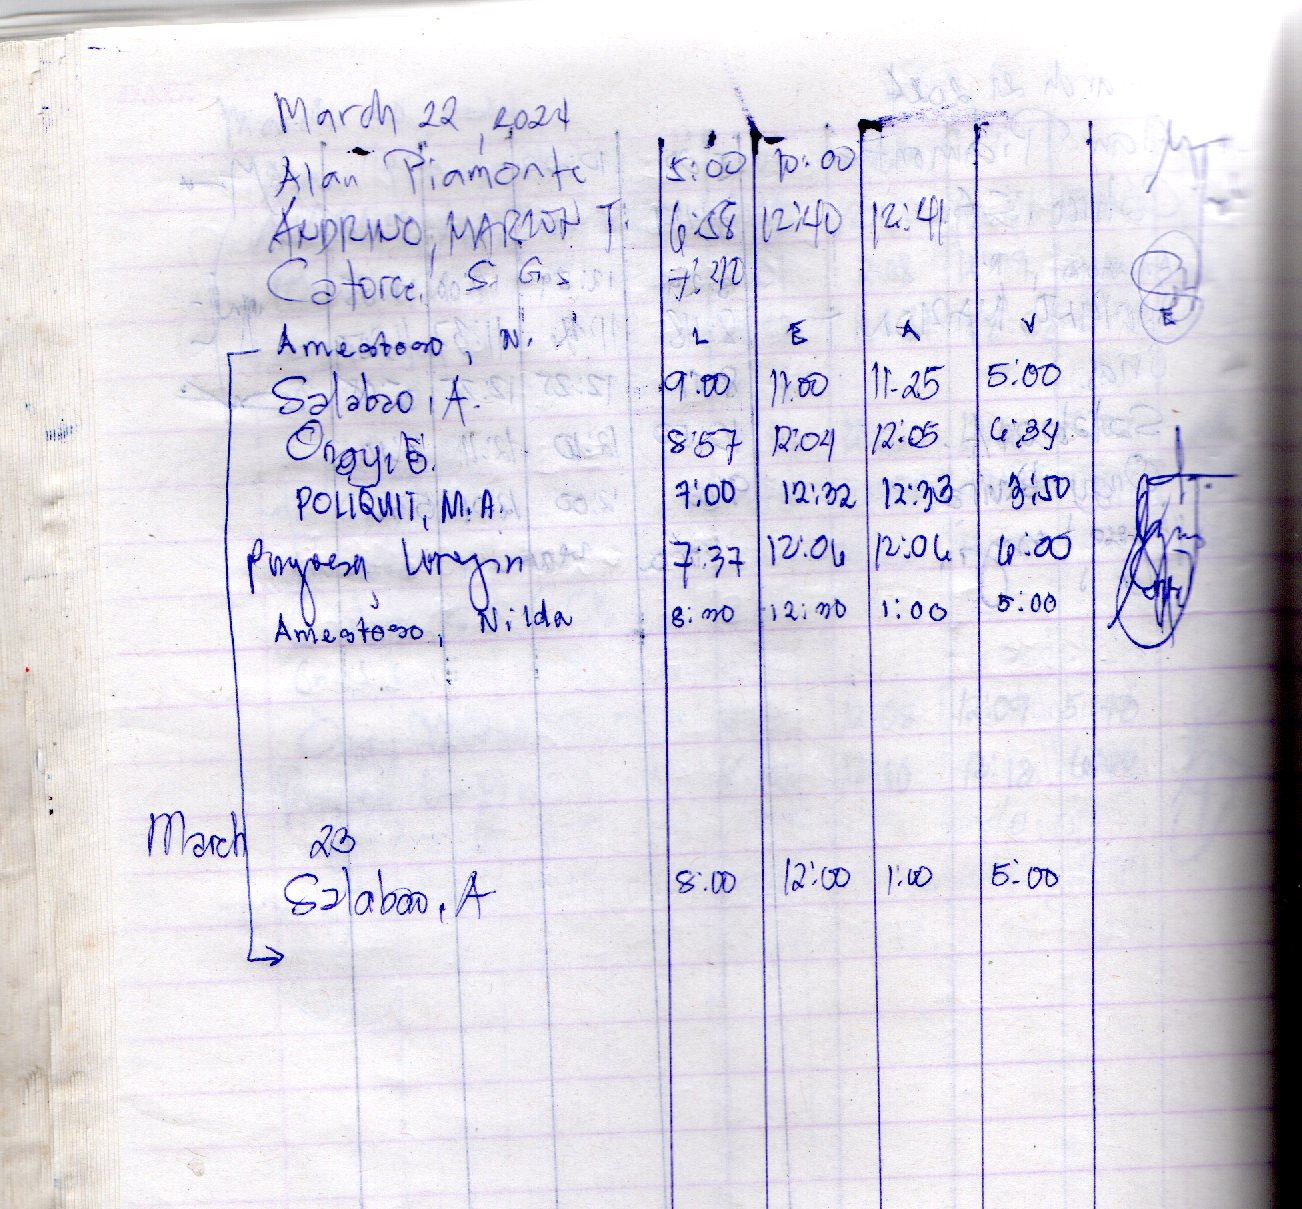 March 22, 2024
Alan Piamonte 5:00 10:00
ANDRINO, MARZON T. 6:58 12:40 12:41
Catorce, S. G. 7:20
Amestoso, N. L E A V E
Salabao, A. 9:00 11:00 11-25 5:00
8:57 12:04 12:05 6:34
POLIQUIT, M.A. 7:00 12:32 12:33 3:50
7:37 12:06 12:06 6:00
Amestoso, Nilda 8:30 12:30 1:00 5:00
March 23
Salabao, A 8:00 12:00 1:00 5:00